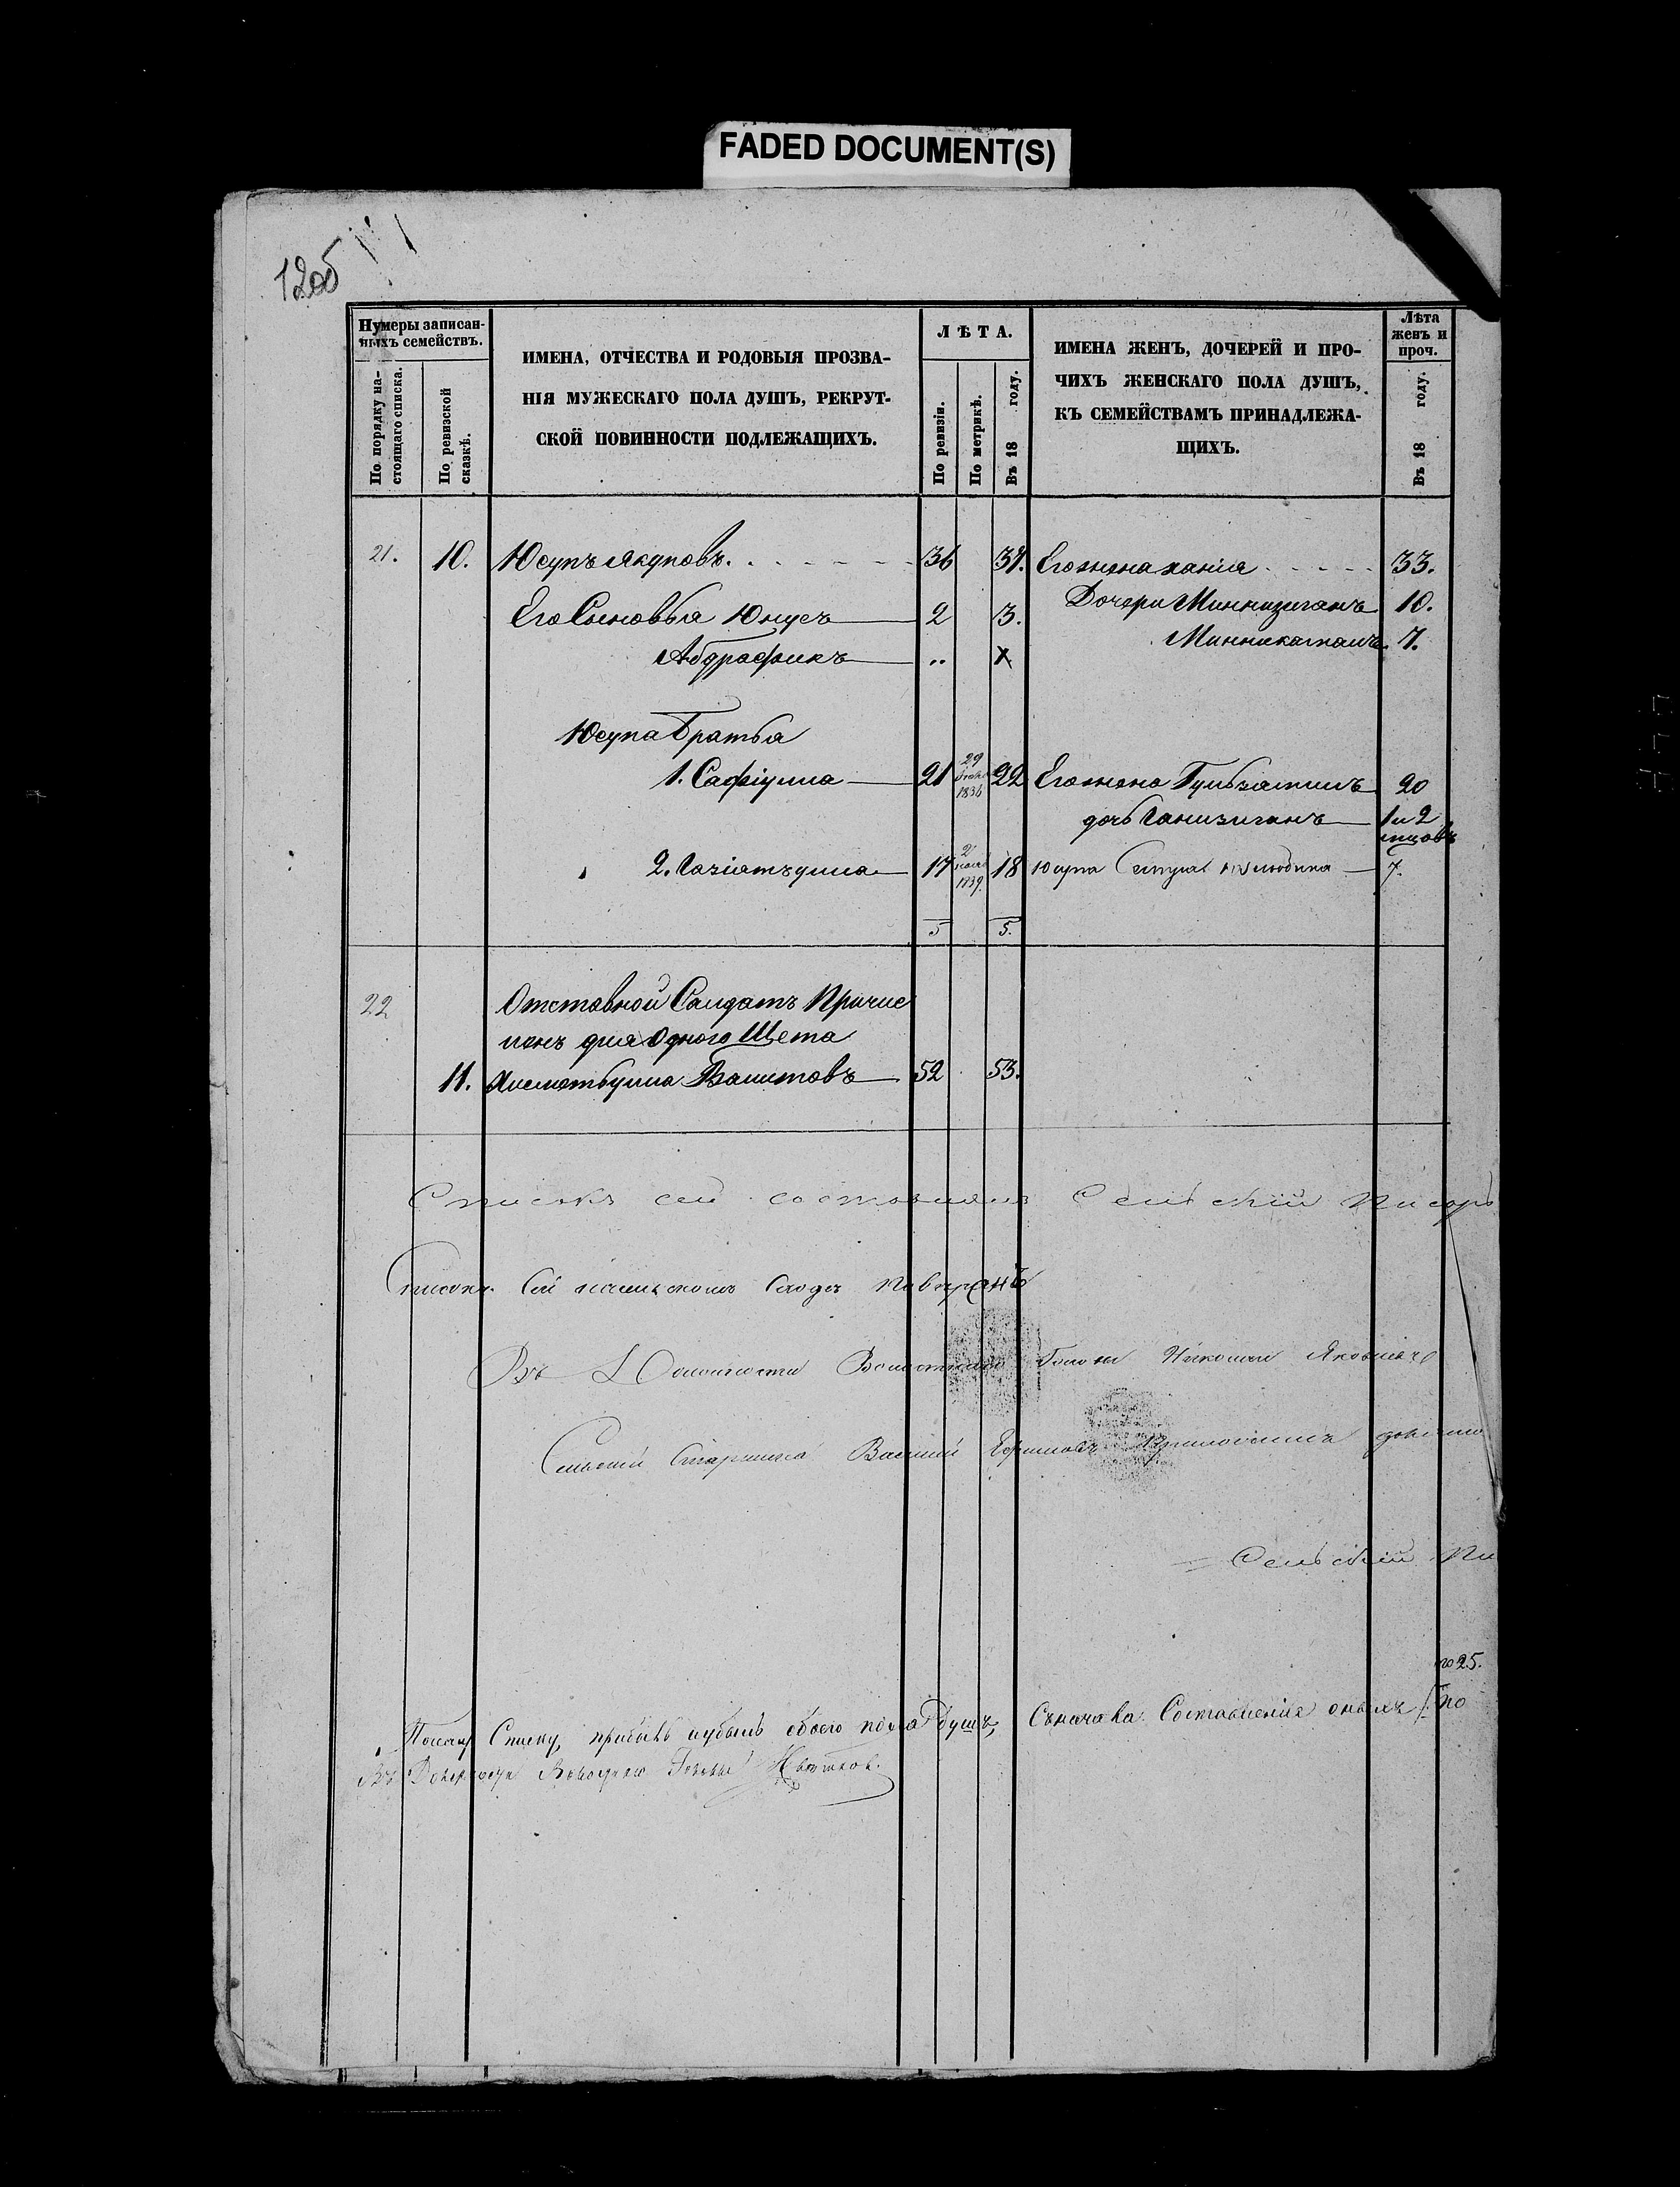 FADED DOCUMENT(S)
12об
Нумеры записан-
ныхъ семействъ.
По порядку на-
стоящаго списка.
По ревизской
сказкѣ.
ИМЕНА, ОТЧЕСТВА И РОДОВЫЯ ПРОЗВА-
НІЯ МУЖЕСКАГО ПОЛА ДУШЪ, РЕКРУТ-
СКОЙ ПОВИННОСТИ ПОДЛЕЖАЩИХЪ.
ЛѢТА.
По ревизіи.
По метрикѣ.
Въ 18 году.
ИМЕНА ЖЕНЪ, ДОЧЕРЕЙ И ПРО-
ЧИХЪ ЖЕНСКАГО ПОЛА ДУШЪ,
КЪ СЕМЕЙСТВАМЪ ПРИНАДЛЕЖА-
ЩИХЪ.
Лѣта
женъ и
проч.
Въ 18 году.
21. 10. Юсупъ Якуповъ. 36 37. Его жена ханія 33.
Его Сыновья Юнусъ 2 3. Дочери Миннизиганъ 10.
Абдрафикъ .. х Минникамалъ 7.
Юсупа Братья
1. Сафіулла 21 29 1836 22 Его жена Гульзямиль 20
дочь Ганизиганъ 1 и 2
мцовъ
2. Газіатъулла 17 2 1839 18 Юсупа Сестра 7.
5 5.
22 Отставной Салдатъ Причис
ленъ для Одного Щета
11. Хисметьулла Валитовъ 52 53.
Списокъ сей составлялъ Сельскій Писарь
Списокъ Сей Сходѣ повѣренъ
Въ Должности Волостнаго Головы Николай Яковлевъ
Сельскій Старшина Василій приложилъ
Сельскій Пи
№ 25.
По сему Списку, прибыль и убыль обоего пола душъ, Съначала Составленія оныхъ по
Въ Должности Волостнаго Головы